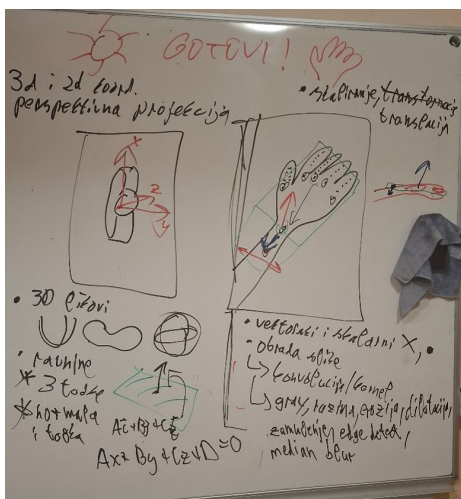 GOTOVI!
3d i 2d koord.
perspektivna projekcija
• skaliranje, transformacija
translacija
x
z
y
• 3D likovi
• ravnine
* 3 točke
* normala
i točka
Ax+By+Cz+D=0
• vektorski i skalarni X, •
• obrada slike
↳ konvolucija/kernel
↳ gray, razina, erozija, dilatacija,
zamućenje, edge detect,
median blur